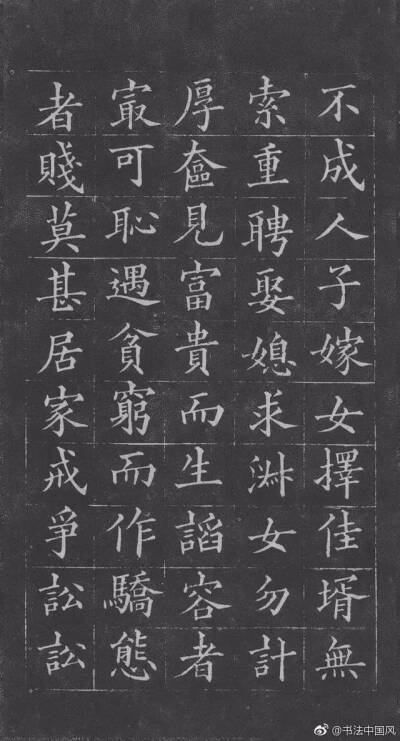 不成人子嫁女擇佳壻無
索重聘娶媳求淑女勿計
厚奩見富貴而生諂容者
㝡可恥遇貧窮而作驕態
者賤莫甚居家戒爭訟訟
@书法中国风